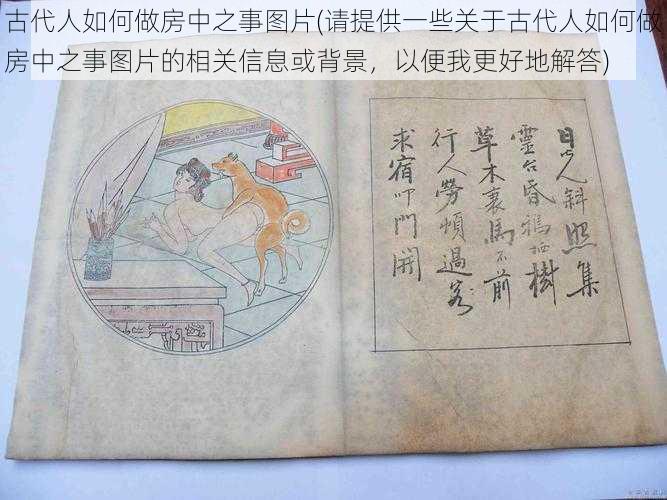 古代人如何做房中之事图片(请提供一些关于古代人如何做
房中之事图片的相关信息或背景，以便我更好地解答)
斜照集
靈台昏鴉
樹
草木裏馬不前
行人勞頓過客
求宿叩門開